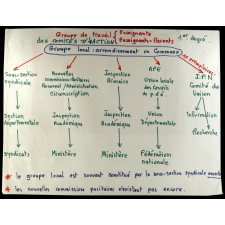 Groupes de travail Enseignants 1er degré
des COMITÉS D'ACTION Enseignants-Parents
Groupe local : arrondissement ou Commune
Sous-section syndicale
Nouvelles commissions paritaires Personnel/Administration Circonscription
Inspection Primaire
APE Union locale des Conseils de p. é.
I.P.N Comité de liaison
Section départementale
Inspection Académique
Inspection Académique
Union Départementale
Information
Recherche
Syndicats
Ministère
Ministère
Fédération nationale
* le groupe local est souvent constitué par la sous-section syndicale ouverte
* les nouvelles commissions paritaires n'existent pas encore.